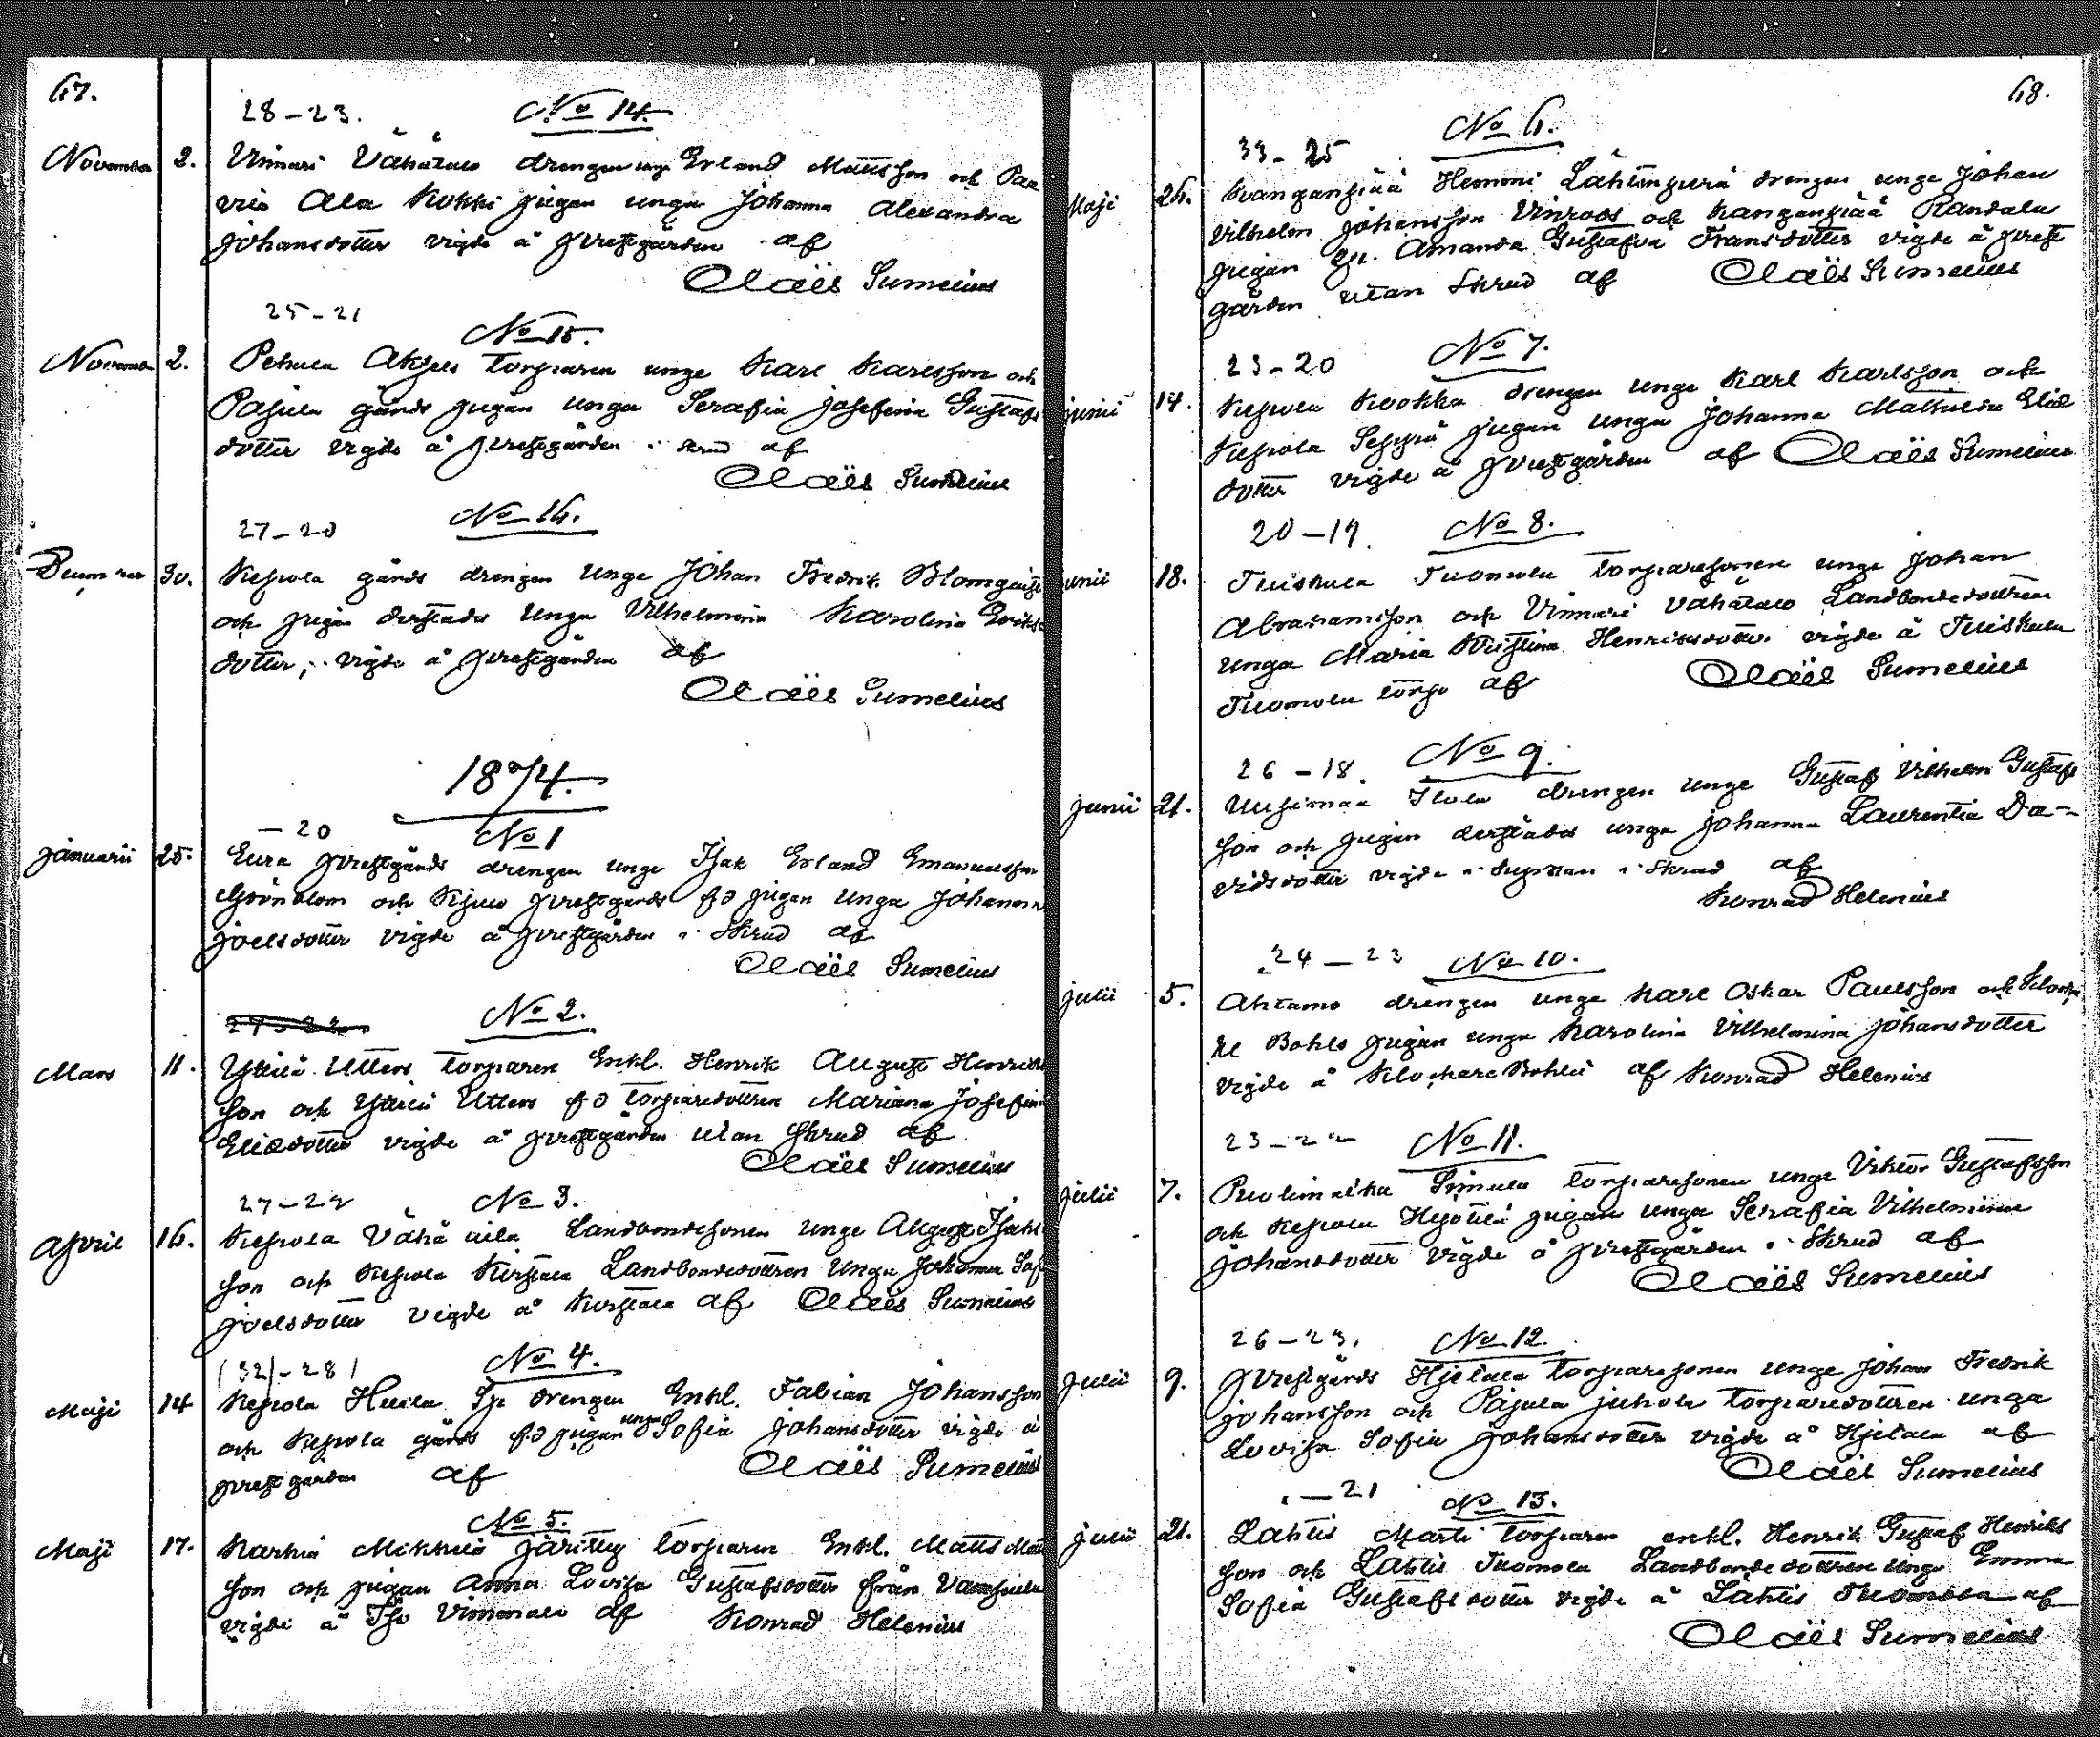 67.
28-23. No 14.
November 2. Vinnari Vähätalo drengen unge Erland Mattsson och Paa
vis Ala Kokki pigan unga Johanna Alexandra
Johansdotter vigde å prestgården af
Claës Sumelius
25-21
No 15.
November 2. Petula torparen unge Karl Karlsson och
Pajula gårds pigan unga Serafia Josefina Gustafs
dotter vigde å prestgården i skrud af
Claës Sumelius
27-20 No 16.
December 30. Kepola gårds drengen unge Johan Fredrik Blomqvist
och pigan derstädes unga Vilhelmina Karolina Eriks
dotter, vigde å prestgården af
Claës Sumelius
1874.
-20 No 1
Januarii 25. Eura prestgårds drengen unge Isak Erland Emanuelsson
Grönblom och Kjulo prestgårds fd pigan unga Johanna
Joelsdotter vigde å prestgården i skrud af
Claës Sumelius
No 2.
Mars 11. Utters torparen Enkl. Henrik August Henriks
son och Utters fd torparedottren Mariana Josefina
Eliedotter vigde å prestgården utan skrud af
Claës Sumelius
27-22 No 3.
April 16. Kepola Vähä Landbondesonen unge August Isaks
son och Kepola Landbondedottren unga Johanna
Joelsdotter vigde å af Claës Sumelius
(32)-28) No 4.
Maji 14 Kepola Huila drengen Enkl. Fabian Johansson
och Kepola gårds fd pigan unga Sofia Johansdotter vigde å
prestgården af Claës Sumelius
No 5.
Maji 17. Mikkilä torparen Enkl. Matts
son och pigan Anna Lovisa Gustafsdotter från
vigde å af Konrad Helenius
68.
No 6.
33-25
Maji 26. Kvanganpää Hemmi drengen unge Johan
Vilhelm Johansson Vinroos och Kanganpää Randala
pigan Amanda Gustafva Fransdotter vigde å prest
gården utan skrud af Claës Sumelius
23-20 No 7.
Junii 14. Kepola Kookka drengen unge Karl Karlsson och
Kepola Seppä pigan unga Johanna Mathilda Elie
dotter vigde å prestgården af Claës Sumelius
20-19. No 8.
Junii 18. Tuiskula Tuomola torparesonen unge Johan
Abrahamsson och Vinnari Vähätalo Landbondedottren
unga Maria Kristina Henriksdotter vigde å Tuiskula
Tuomola torp af Claës Sumelius
26-18. No 9.
Junii 21. Uusimaa drengen unge Gustaf Vilhelm Gustafs
son och pigan derstädes unga Johanna Laurentia Da-
vidsdotter vigde i i skrud af
Konrad Helenius
24-23 No 10.
Julii 5. Ahtamo drengen unge Karl Oskar Paulsson och
Bohls pigan unga Karolina Vilhelmina Johansdotter
vigde å Klockare Bohlet af Konrad Helenius
23-22 No 11.
Julii 7. Puolimatka Simula torparesonen unge Viktor Gustafsson
och Kepola pigan unga Serafia Vilhelmina
Johansdotter vigde å prestgården i skrud af
Claës Sumelius
26-23. No 12.
Julii 9. Prestgårds Hjetala torparesonen unge Johan Fredrik
Johansson och Pajula Juhola torparedottren unga
Lovisa Sofia Johansdotter vigde å Hjetala af
Claës Sumelius
-21 No 13.
Julii 21. Lahtis torparen enkl. Henrik Gustaf Henriks
son och Lahtis Tuomola Landbondedottren unga Emma
Sofia Gustafsdotter vigde å Lahtis Tuomola af
Claës Sumelius